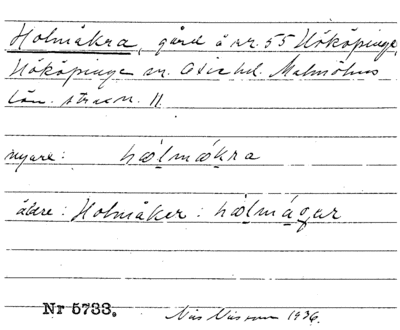 Holmåkra, gård å nr. 55 Nököpinge,
Nököpinge sn. Oxie hd. Malmöhus
län. 11.
nyare: hòlmåkra
äldre: Holmåker: hòlmågar
Nr 5733. Nils 1936.